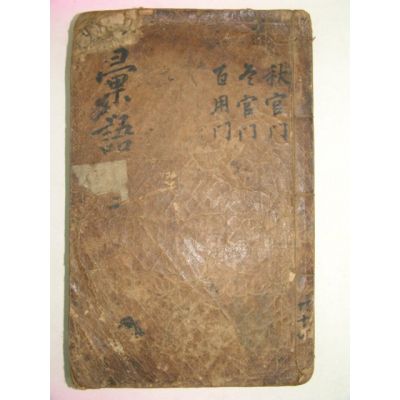 秋官門
冬官門
百用門
彙語